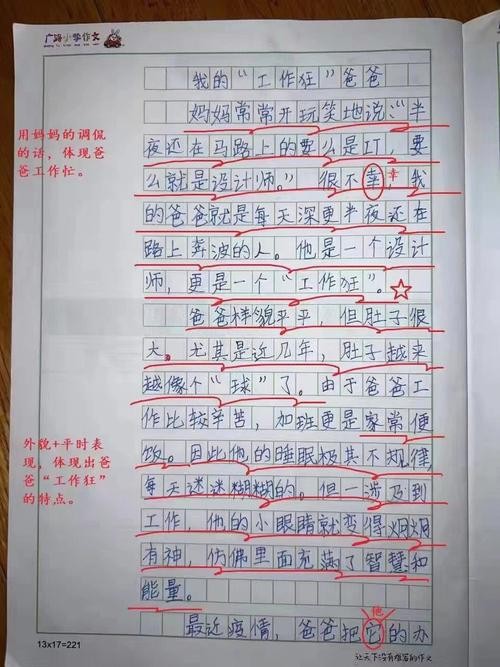 广海小学作文
我的“工作狂”爸爸
妈妈常常开玩笑地说:“半
夜还在马路上的要么是IT,要
么就是设计师。”很不幸,我
幸
的爸爸就是每天深更半夜还在
路上奔波的人。他是一个设计
师,更是一个“工作狂”。
用妈妈的调侃
的话,体现爸
爸工作忙。
爸爸样貌平平,但肚子很
大。尤其是近几年,肚子越来
越像个“球”了。由于爸爸工
作比较辛苦,加班更是家常便
饭。因此他的睡眠极其不规律,
每天迷迷糊糊的。但一涉及到
工作,他的小眼睛就变得炯炯
有神,仿佛里面充满了智慧和
能量。
外貌+平时表
现,体现出爸
爸“工作狂”
的特点。
他
最近疫情,爸爸把它的办
13x17=221
让天下没有难写的作文